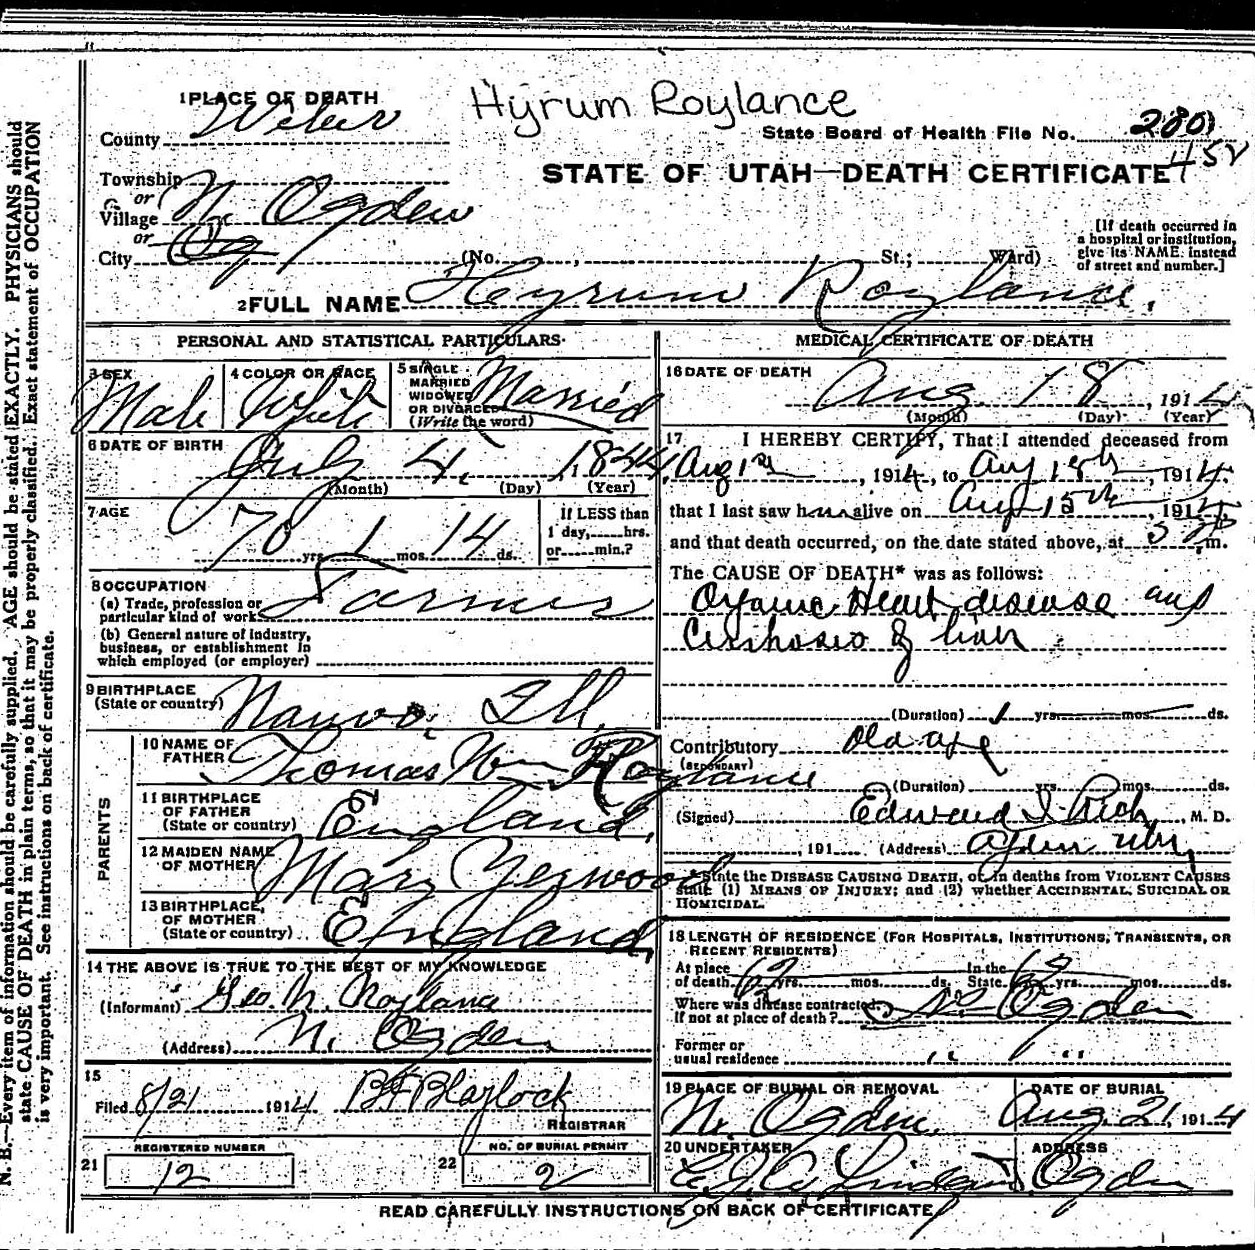 Hyrum Roylance
1 PLACE OF DEATH
County Weber
State Board of Health File No. 280
452
STATE OF UTAH—DEATH CERTIFICATE
Township
or
Village N. Ogden
or
City Og (No. , St.; Ward)
[If death occurred in
a hospital or institution,
give its NAME instead
of street and number.]
2 FULL NAME Heyrum Roylance.
PERSONAL AND STATISTICAL PARTICULARS
3 SEX Male
4 COLOR OR RACE White
5 SINGLE
MARRIED
WIDOWED
OR DIVORCED
(Write the word) Married
6 DATE OF BIRTH
July 4, 1844
(Month) (Day) (Year)
7 AGE
70 yrs. 1 mos. 14 ds.
If LESS than
1 day, hrs.
or min.?
8 OCCUPATION
(a) Trade, profession or
particular kind of work Farmer
(b) General nature of industry,
business, or establishment in
which employed (or employer)
9 BIRTHPLACE
(State or country) Nauvoo, Ill.
PARENTS
10 NAME OF
FATHER Thomas Wm Roylance
11 BIRTHPLACE
OF FATHER
(State or country) England,
12 MAIDEN NAME
OF MOTHER Mary Yerwood
13 BIRTHPLACE
OF MOTHER
(State or country) England,
14 THE ABOVE IS TRUE TO THE BEST OF MY KNOWLEDGE
(Informant) Geo. M. Roylance
(Address) N. Ogden
15
Filed 8/21 1914 B F Blaylock
REGISTRAR
REGISTERED NUMBER
21 12
NO. OF BURIAL PERMIT
22 2
MEDICAL CERTIFICATE OF DEATH
16 DATE OF DEATH
Aug. 18, 1914
(Month) (Day) (Year)
17 I HEREBY CERTIFY, That I attended deceased from
Aug 1st, 1914, to Aug 18th, 1914.
that I last saw him alive on Aug 15th, 1914.
and that death occurred, on the date stated above, at m.
The CAUSE OF DEATH* was as follows:
Organic Heart disease and
Cirrhosis of liver
(Duration) 1 yrs. mos. ds.
Contributory Old age
(SECONDARY)
(Duration) yrs. mos. ds.
(Signed) Edward I. Rich, M. D.
, 191 (Address) Ogden Utah
*State the DISEASE CAUSING DEATH, or, in deaths from VIOLENT CAUSES
state (1) MEANS OF INJURY; and (2) whether ACCIDENTAL, SUICIDAL OR
HOMICIDAL.
18 LENGTH OF RESIDENCE (FOR HOSPITALS, INSTITUTIONS, TRANSIENTS, OR
RECENT RESIDENTS)
At place
of death yrs. mos. ds. In the
State yrs. mos. ds.
Where was disease contracted
If not at place of death? No Ogden
Former or
usual residence " "
19 PLACE OF BURIAL OR REMOVAL
N. Ogden.
DATE OF BURIAL
Aug. 21, 1914
20 UNDERTAKER
ADDRESS
Ogden
READ CAREFULLY INSTRUCTIONS ON BACK OF CERTIFICATE
N. B.—Every item of information should be carefully supplied. AGE should be stated EXACTLY. PHYSICIANS should
state CAUSE OF DEATH in plain terms, so that it may be properly classified. Exact statement of OCCUPATION
is very important. See instructions on back of certificate.